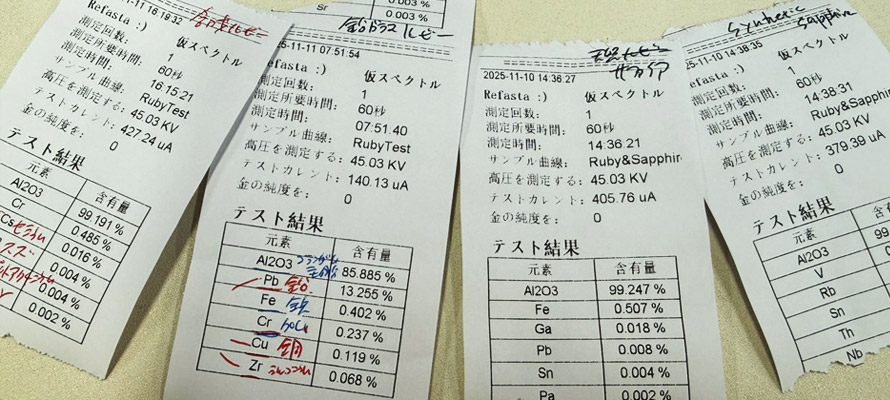 11 16 19:32
合成ルビー
Refasta :)
仮スペクトル
測定回数:
1
測定所要時間:
60秒
測定時間:
16:15:21
サンプル曲線:
RubyTest
高圧を測定する:
45.03 KV
テストカレント:
427.24 uA
金の純度を:
0
テスト結果
元素
含有量
Al2O3
99.191 %
Cr
0.485 %
Cs
0.016 %
0.004 %
0.004 %
0.002 %
Sr
0.003 %
0.003 %
鉛ガラスルビー
25-11-11 07:51:54
Refasta :)
仮スペクトル
測定回数:
1
測定所要時間:
60秒
測定時間:
07:51:40
サンプル曲線:
RubyTest
高圧を測定する:
45.03 KV
テストカレント:
140.13 uA
金の純度を:
0
テスト結果
元素
含有量
Al2O3
85.885 %
Pb 鉛
13.255 %
Fe 鉄
0.402 %
Cr クロム
0.237 %
Cu 銅
0.119 %
Zr ジルコニウム
0.068 %
天然ルビー
2025-11-10 14:36:27
Refasta :)
仮スペクトル
測定回数:
1
測定所要時間:
60秒
測定時間:
14:36:21
サンプル曲線:
Ruby&Sapphir
高圧を測定する:
45.03 KV
テストカレント:
405.76 uA
金の純度を:
0
テスト結果
元素
含有量
Al2O3
99.247 %
Fe
0.507 %
Ga
0.018 %
Pb
0.008 %
Sn
0.004 %
Pa
0.002 %
Synthetic
Sapphire
25-11-10 14:38:35
Refasta :)
仮スペクトル
測定回数:
1
測定所要時間:
60秒
測定時間:
14:38:31
サンプル曲線:
Ruby&Sapphi
高圧を測定する:
45.03 KV
テストカレント:
379.39 uA
金の純度を:
0
テスト結果
元素
含有
Al2O3
99.
V
Rb
Sn
Th
Nb